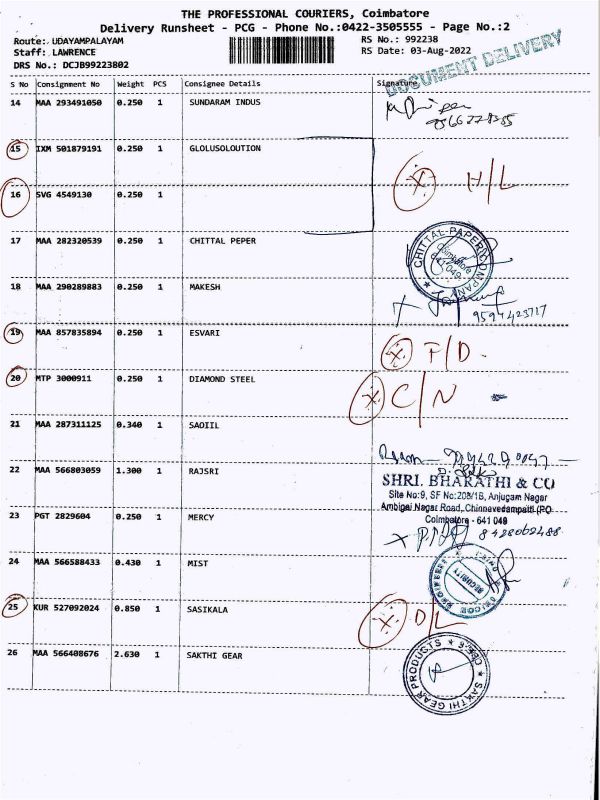 THE PROFESSIONAL COURIERS, Coimbatore
Delivery Runsheet - PCG - Phone No.:0422-3505555 - Page No.:2
Route: UDAYAMPALAYAM RS No.: 992238
Staff: LAWRENCE RS Date: 03-Aug-2022
DRS No.: DCJB99223802
DOCUMENT DELIVERY
S No Consignment No Weight PCS Consignee Details Signature
14 MAA 293491050 0.250 1 SUNDARAM INDUS
15 IXM 501879191 0.250 1 GLOLUSOLOUTION
H/L
16 SVG 4549130 0.250 1
17 MAA 282320539 0.250 1 CHITTAL PEPER
CHITTAL PAPER COMPANY
18 MAA 290289883 0.250 1 MAKESH
9594423717
19 MAA 857835894 0.250 1 ESVARI
F/D.
20 MTP 3000911 0.250 1 DIAMOND STEEL
C/N
21 MAA 287311125 0.340 1 SAOIIL
22 MAA 566803059 1.300 1 RAJSRI
SHRI. BHARATHI & CO
Site No:9, SF No:208/1B, Anjugam Nagar
Ambigai Nagar Road, Chinnavedampatti (PO
Coimbatore - 641 049
23 PGT 2829604 0.250 1 MERCY
8428062488
24 MAA 566588433 0.430 1 MIST
SECURITY
25 KUR 527092024 0.850 1 SASIKALA
D/L
26 MAA 566408676 2.630 1 SAKTHI GEAR
SAKTHI GEAR PRODUCTS